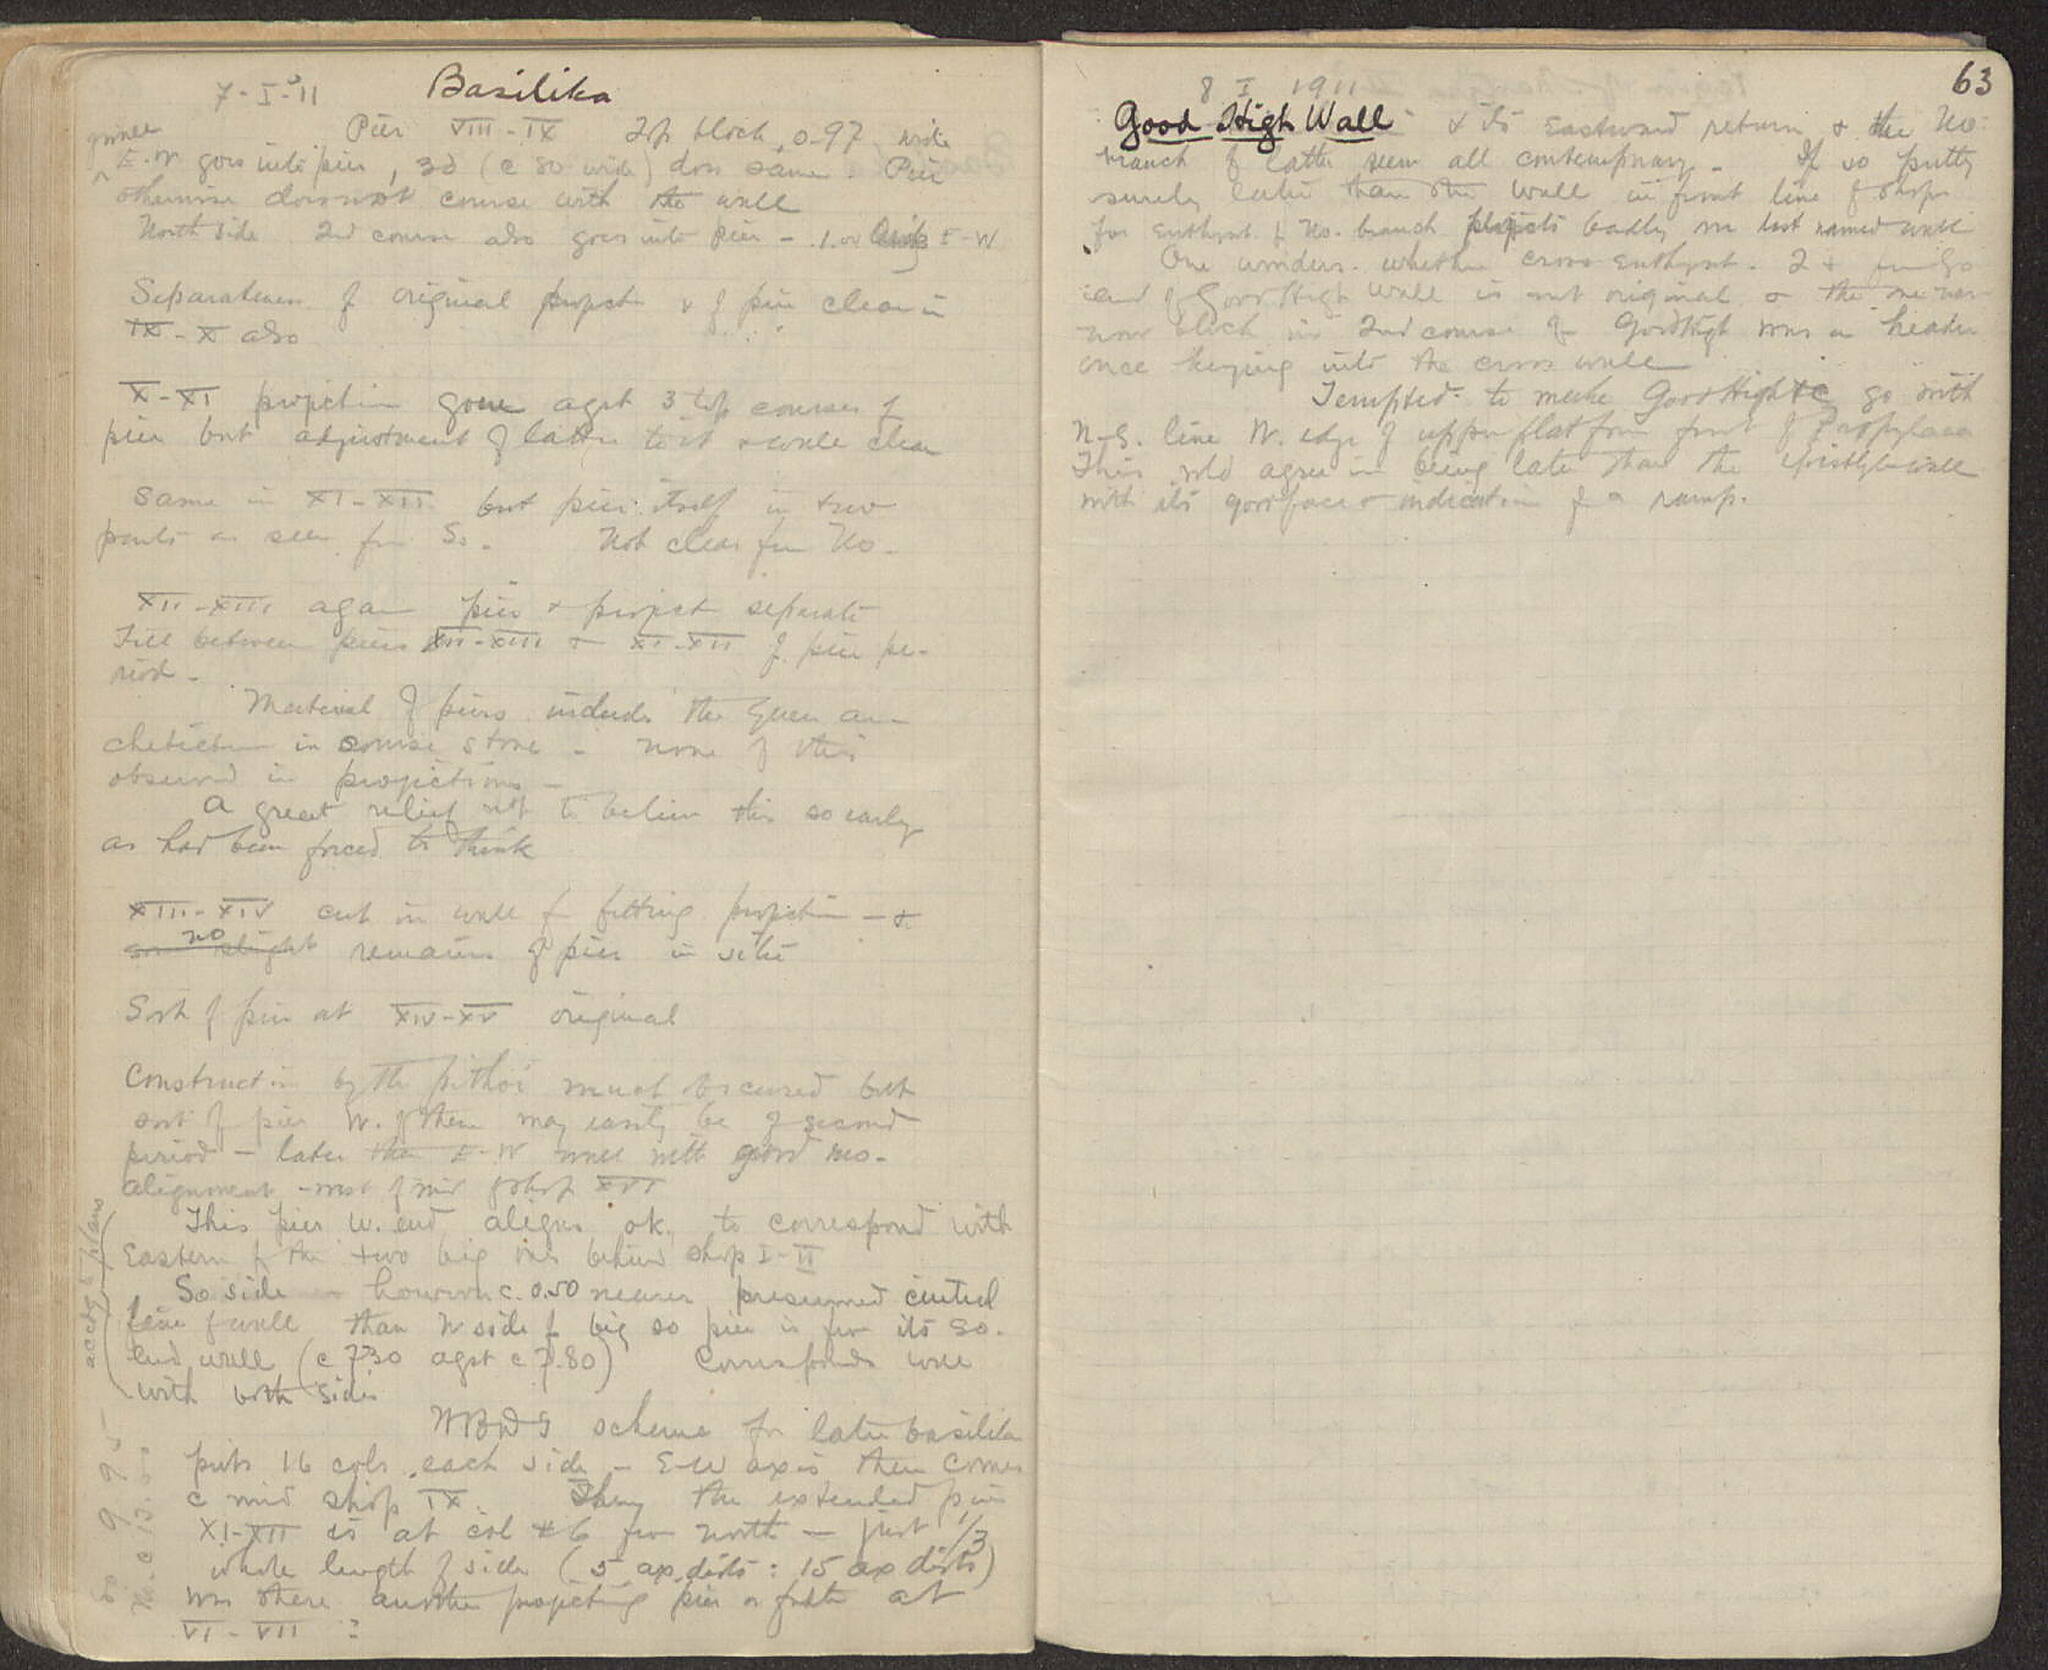 7-I-'11 Basilika
Pier VIII-IX Top block, 0.97 wide
E-W goes into pier, 3d (c 80 wide) does same. Pier
otherwise does not course with the wall
North side 2nd course also goes into pier - 1. E-W
Separateness of original project & of pier clear in
IX-X also
X-XI projection gone agst 3 top courses of
pier but adjustment of latter to it & wall clear
Same in XI-XII but pier itself in two
parts as seen fm So. Not clear fm No.
XII-XIII again pier & project separate
Fill between piers XII-XIII & XI-XII of pier pe-
riod.
Material of piers includes the Green ar-
chitecture in coarse stone - none of this
observed in projections -
A great relief not to believe this so early
as had been forced to think
XIII-XIV cut in wall for fitting projection - &
no remains of pier in situ
Sort of pier at XIV-XV original
Construction by the pithoi much obscured but
sort of pier W. of them may easily be of second
period - later than E-W wall with good no-
alignment - west of mid of shop XVI
This pier W. end aligns ok. to correspond with
Eastern of the two big ones behind shop I-II
So side however c. 0.50 nearer presumed central
line of wall than N side of big so pier is fm its So.
end wall (c 7.30 agst c 7.80) Corresponds well
with both sides
acc to plans
WBD's scheme for later basilika
puts 16 cols. each side - E-W axis then comes
c mid shop IX. Then the extended pier
XI-XII is at col #6 fm north - just 1/3
whole length of side (5 ax. dists : 15 ax dists)
Was there another projecting pier at
VI-VII ?
So 9.95
No. c 13.50
63
8 I 1911
Good High Wall & its Eastward return & the No.
branch of latter seem all contemporary - If so pretty
surely later than the wall in front line of shops
for euthynt. of No. branch projects badly on last named wall
One wonders whether cross euthynt. 2+ fm So
end of Good High Wall is not original & the
now block in 2nd course of GoodHigh was a header
once keying into the cross wall
Tempted to make GoodHigh etc go with
N-S. line W. edge of upper flat from front of Propylaea
This wld agree in being later than the epistyle wall
with its good face & indication of a ramp.